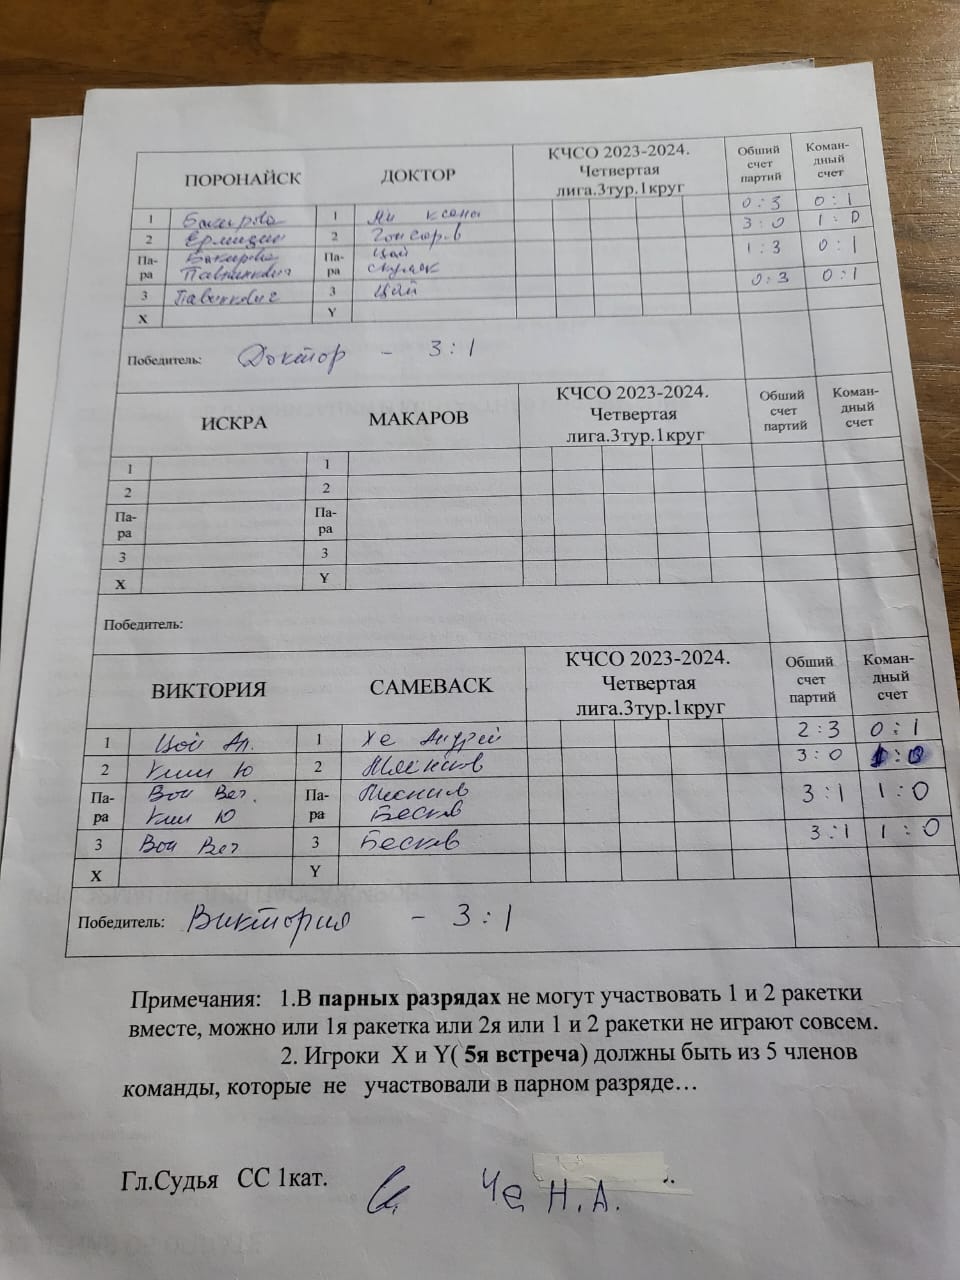 ПОРОНАЙСК ДОКТОР КЧСО 2023-2024. Четвертая лига.3тур.1круг Обший счет партий Коман-дный счет
1 1 Ли 0:3 0:1
2 2 3:0 1:0
Па-ра Бакирова Па-ра Цой 1:3 0:1
3 3 Цой 0:3 0:1
X Y
Победитель: Доктор - 3:1
ИСКРА МАКАРОВ КЧСО 2023-2024. Четвертая лига.3тур.1круг Обший счет партий Коман-дный счет
1 1
2 2
Па-ра Па-ра
3 3
X Y
Победитель:
ВИКТОРИЯ CAMEBACK КЧСО 2023-2024. Четвертая лига.3тур.1круг Обший счет партий Коман-дный счет
1 Цой Ал. 1 Хе Андрей 2:3 0:1
2 Ким Ю 2 3:0 1:0
Па-ра Вон Вет. Па-ра 3:1 1:0
Ким Ю Бесков
3 Вон Вет 3 Бесков 3:1 1:0
X Y
Победитель: Виктория - 3:1
Примечания: 1.В парных разрядах не могут участвовать 1 и 2 ракетки
вместе, можно или 1я ракетка или 2я или 1 и 2 ракетки не играют совсем.
2. Игроки X и Y( 5я встреча) должны быть из 5 членов
команды, которые не участвовали в парном разряде…
Гл.Судья СС 1кат. Че Н.А.